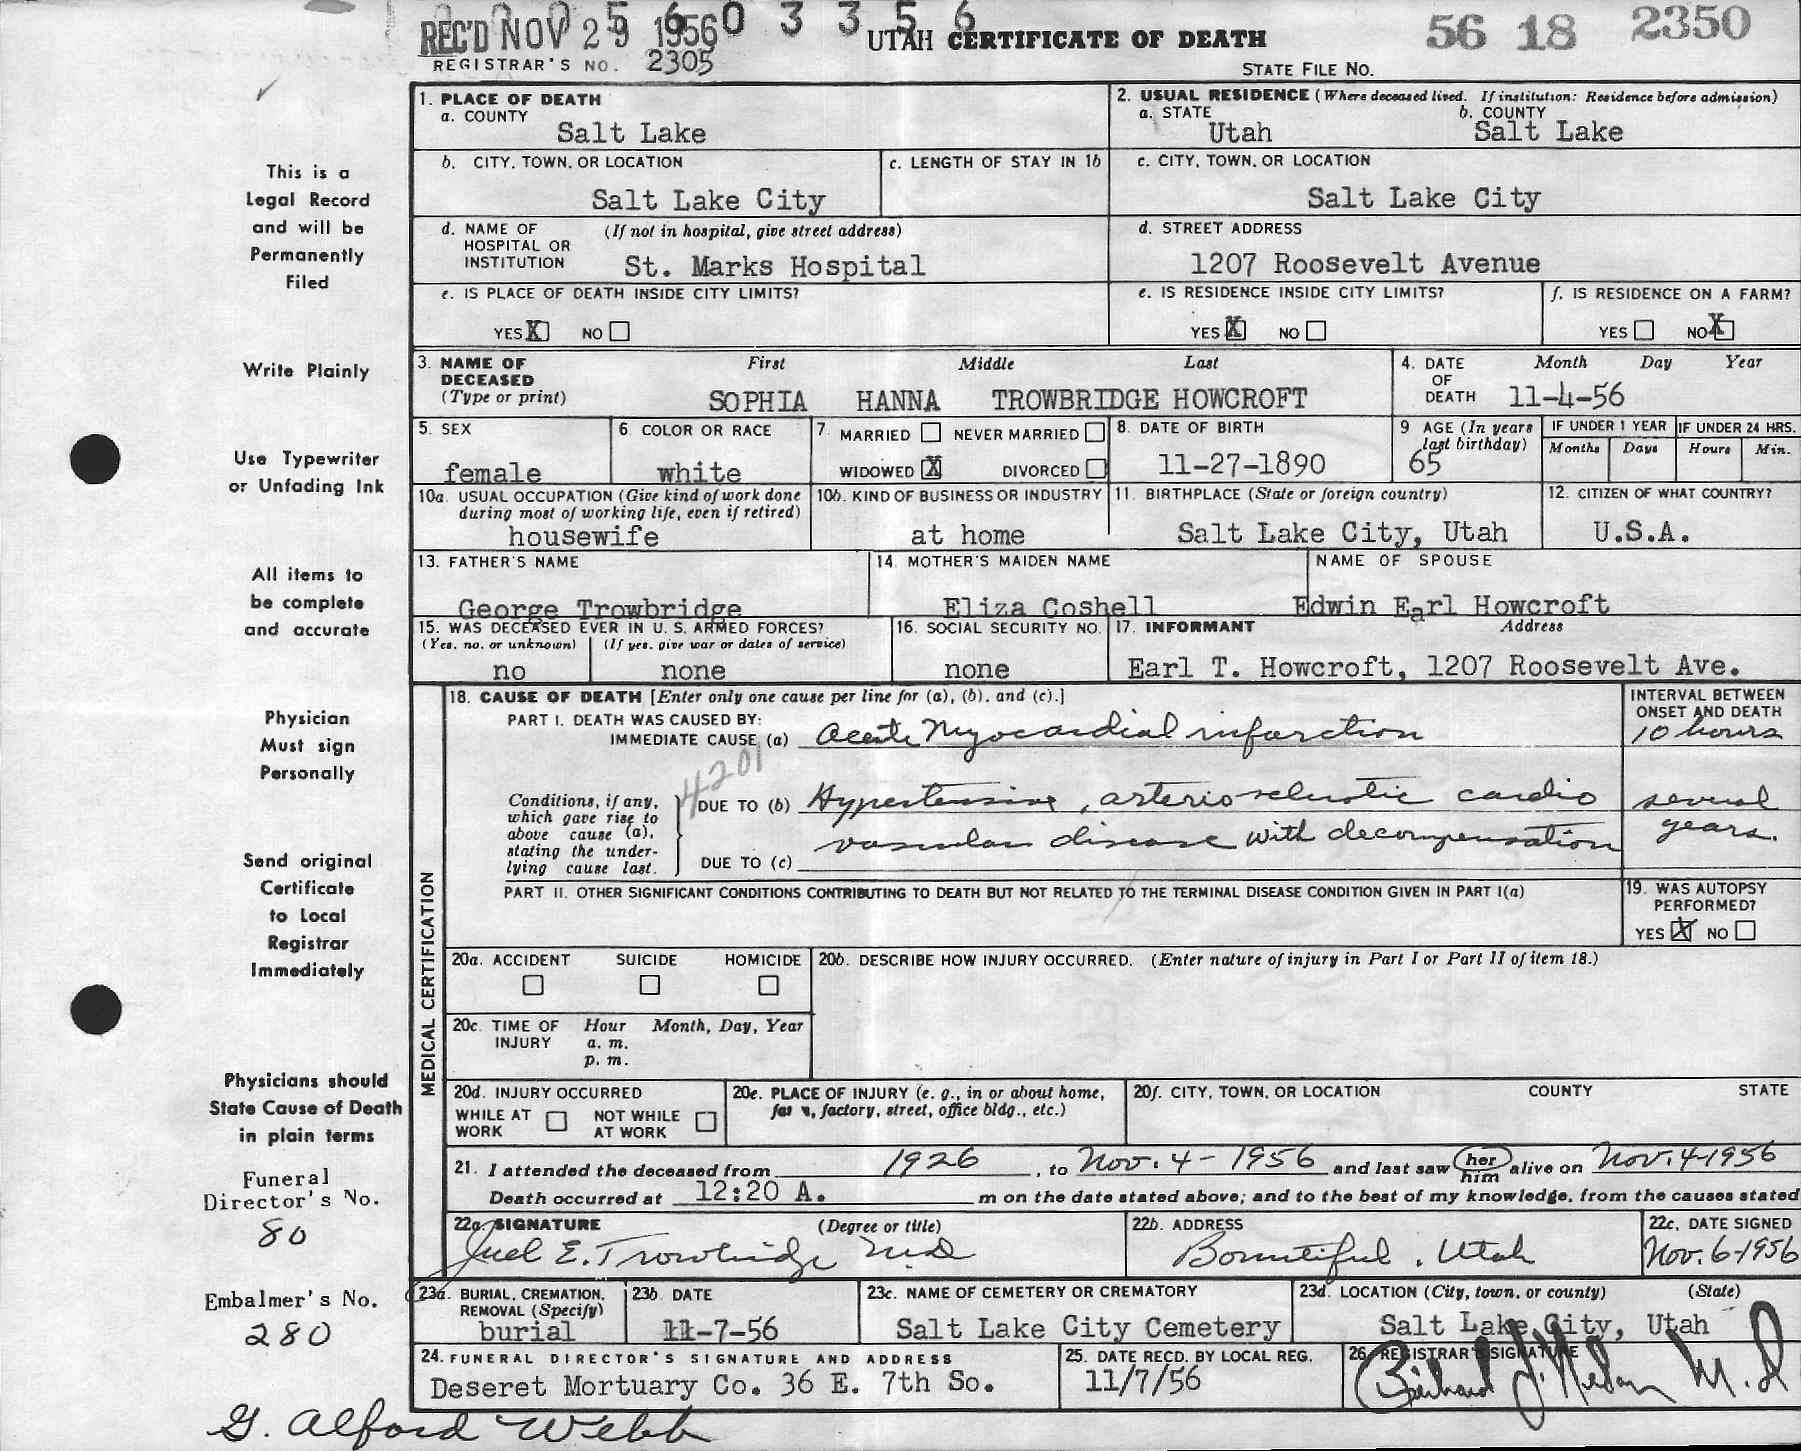 REC'D NOV 29 1956 0 3 3 5 6
56 18 2350
UTAH CERTIFICATE OF DEATH
REGISTRAR'S NO. 2305
STATE FILE NO.
This is a
Legal Record
and will be
Permanently
Filed
Write Plainly
Use Typewriter
or Unfading Ink
All items to
be complete
and accurate
Physician
Must sign
Personally
Send original
Certificate
to Local
Registrar
Immediately
Physicians should
State Cause of Death
in plain terms
Funeral
Director's No.
80
Embalmer's No.
280
1. PLACE OF DEATH
a. COUNTY
Salt Lake
2. USUAL RESIDENCE (Where deceased lived. If institution: Residence before admission)
a. STATE
Utah
b. COUNTY
Salt Lake
b. CITY, TOWN, OR LOCATION
Salt Lake City
c. LENGTH OF STAY IN 1b
c. CITY, TOWN, OR LOCATION
Salt Lake City
d. NAME OF HOSPITAL OR INSTITUTION
(If not in hospital, give street address)
St. Marks Hospital
d. STREET ADDRESS
1207 Roosevelt Avenue
e. IS PLACE OF DEATH INSIDE CITY LIMITS?
YES X NO
e. IS RESIDENCE INSIDE CITY LIMITS?
YES X NO
f. IS RESIDENCE ON A FARM?
YES NO X
3. NAME OF DECEASED
(Type or print)
First Middle Last
SOPHIA HANNA TROWBRIDGE HOWCROFT
4. DATE OF DEATH
Month Day Year
11-4-56
5. SEX
female
6 COLOR OR RACE
white
7. MARRIED NEVER MARRIED
WIDOWED X DIVORCED
8. DATE OF BIRTH
11-27-1890
9 AGE (In years last birthday)
65
IF UNDER 1 YEAR
Months Days
IF UNDER 24 HRS.
Hours Min.
10a. USUAL OCCUPATION (Give kind of work done during most of working life, even if retired)
housewife
10b. KIND OF BUSINESS OR INDUSTRY
at home
11. BIRTHPLACE (State or foreign country)
Salt Lake City, Utah
12. CITIZEN OF WHAT COUNTRY?
U.S.A.
13. FATHER'S NAME
George Trowbridge
14. MOTHER'S MAIDEN NAME
Eliza Coshell
NAME OF SPOUSE
Edwin Earl Howcroft
15. WAS DECEASED EVER IN U. S. ARMED FORCES?
(Yes, no, or unknown) (If yes, give war or dates of service)
no none
16. SOCIAL SECURITY NO.
none
17. INFORMANT Address
Earl T. Howcroft, 1207 Roosevelt Ave.
MEDICAL CERTIFICATION
18. CAUSE OF DEATH [Enter only one cause per line for (a), (b), and (c).]
INTERVAL BETWEEN ONSET AND DEATH
PART I. DEATH WAS CAUSED BY:
IMMEDIATE CAUSE (a) Acute Myocardial infarction
10 hours
4201
Conditions, if any, which gave rise to above cause (a), stating the underlying cause last.
DUE TO (b) Hypertensive, arteriosclerotic cardio
several years.
vascular disease with decompensation
DUE TO (c)
PART II. OTHER SIGNIFICANT CONDITIONS CONTRIBUTING TO DEATH BUT NOT RELATED TO THE TERMINAL DISEASE CONDITION GIVEN IN PART I(a)
19. WAS AUTOPSY PERFORMED?
YES X NO
20a. ACCIDENT SUICIDE HOMICIDE
20b. DESCRIBE HOW INJURY OCCURRED. (Enter nature of injury in Part I or Part II of item 18.)
20c. TIME OF INJURY
Hour Month, Day, Year
a. m.
p. m.
20d. INJURY OCCURRED
WHILE AT WORK NOT WHILE AT WORK
20e. PLACE OF INJURY (e. g., in or about home, farm, factory, street, office bldg., etc.)
20f. CITY, TOWN, OR LOCATION COUNTY STATE
21. I attended the deceased from 1926, to Nov. 4 - 1956 and last saw her him alive on Nov. 4-1956
Death occurred at 12:20 A. m on the date stated above; and to the best of my knowledge, from the causes stated
22a. SIGNATURE (Degree or title)
Juel E. Trowbridge M.D
22b. ADDRESS
Bountiful, Utah
22c. DATE SIGNED
Nov. 6-1956
23a. BURIAL, CREMATION, REMOVAL (Specify)
burial
23b. DATE
11-7-56
23c. NAME OF CEMETERY OR CREMATORY
Salt Lake City Cemetery
23d. LOCATION (City, town, or county) (State)
Salt Lake City, Utah
24. FUNERAL DIRECTOR'S SIGNATURE AND ADDRESS
Deseret Mortuary Co. 36 E. 7th So.
25. DATE RECD. BY LOCAL REG.
11/7/56
26. REGISTRAR'S SIGNATURE
M.D
G. Alford Webb